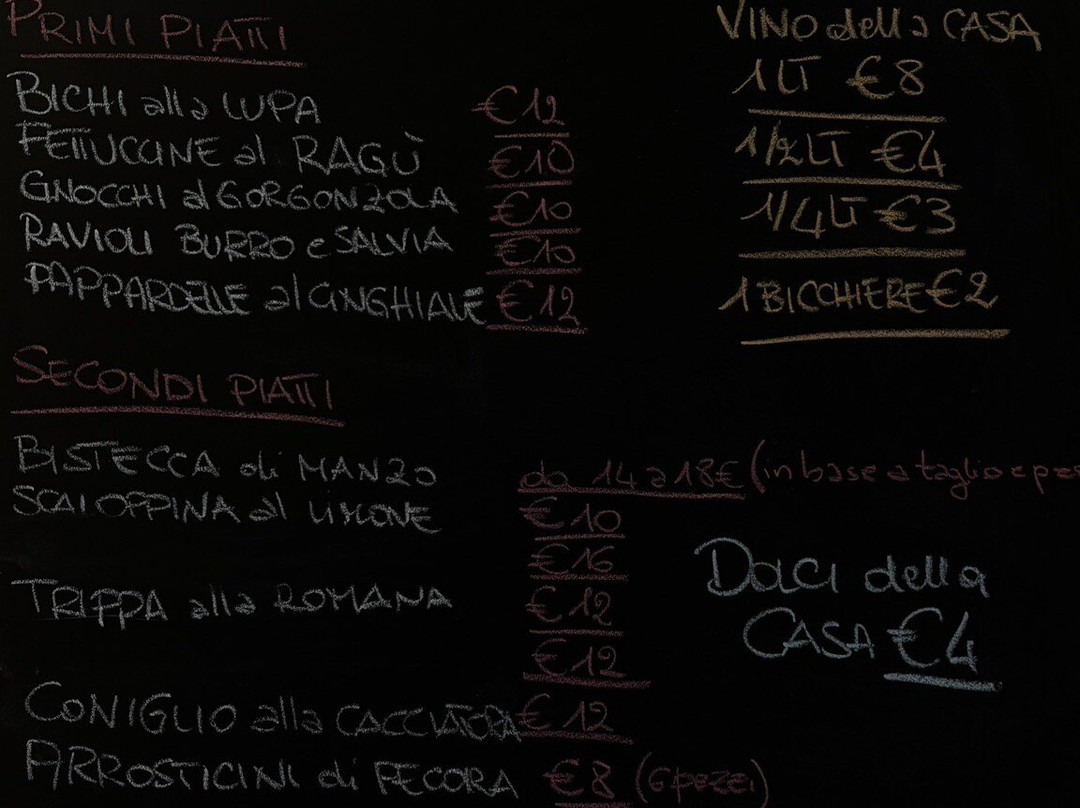 PRIMI PIATTI
BICHI alla LUPA €12
FETTUCCINE al RAGÙ €10
GNOCCHI al GORGONZOLA €10
RAVIOLI BURRO e SALVIA €10
PAPPARDELLE al CINGHIALE €12
SECONDI PIATTI
BISTECCA di MANZO da 14 a 18€ (in base a taglio e pes
SCALOPPINA al LIMONE €10
€16
TRIPPA alla ROMANA €12
€12
CONIGLIO alla CACCIATORA €12
ARROSTICINI di PECORA €8 (6 pezzi)
VINO della CASA
1 LT €8
1/2 LT €4
1/4 LT €3
1 BICCHIERE €2
DOLCI della
CASA €4